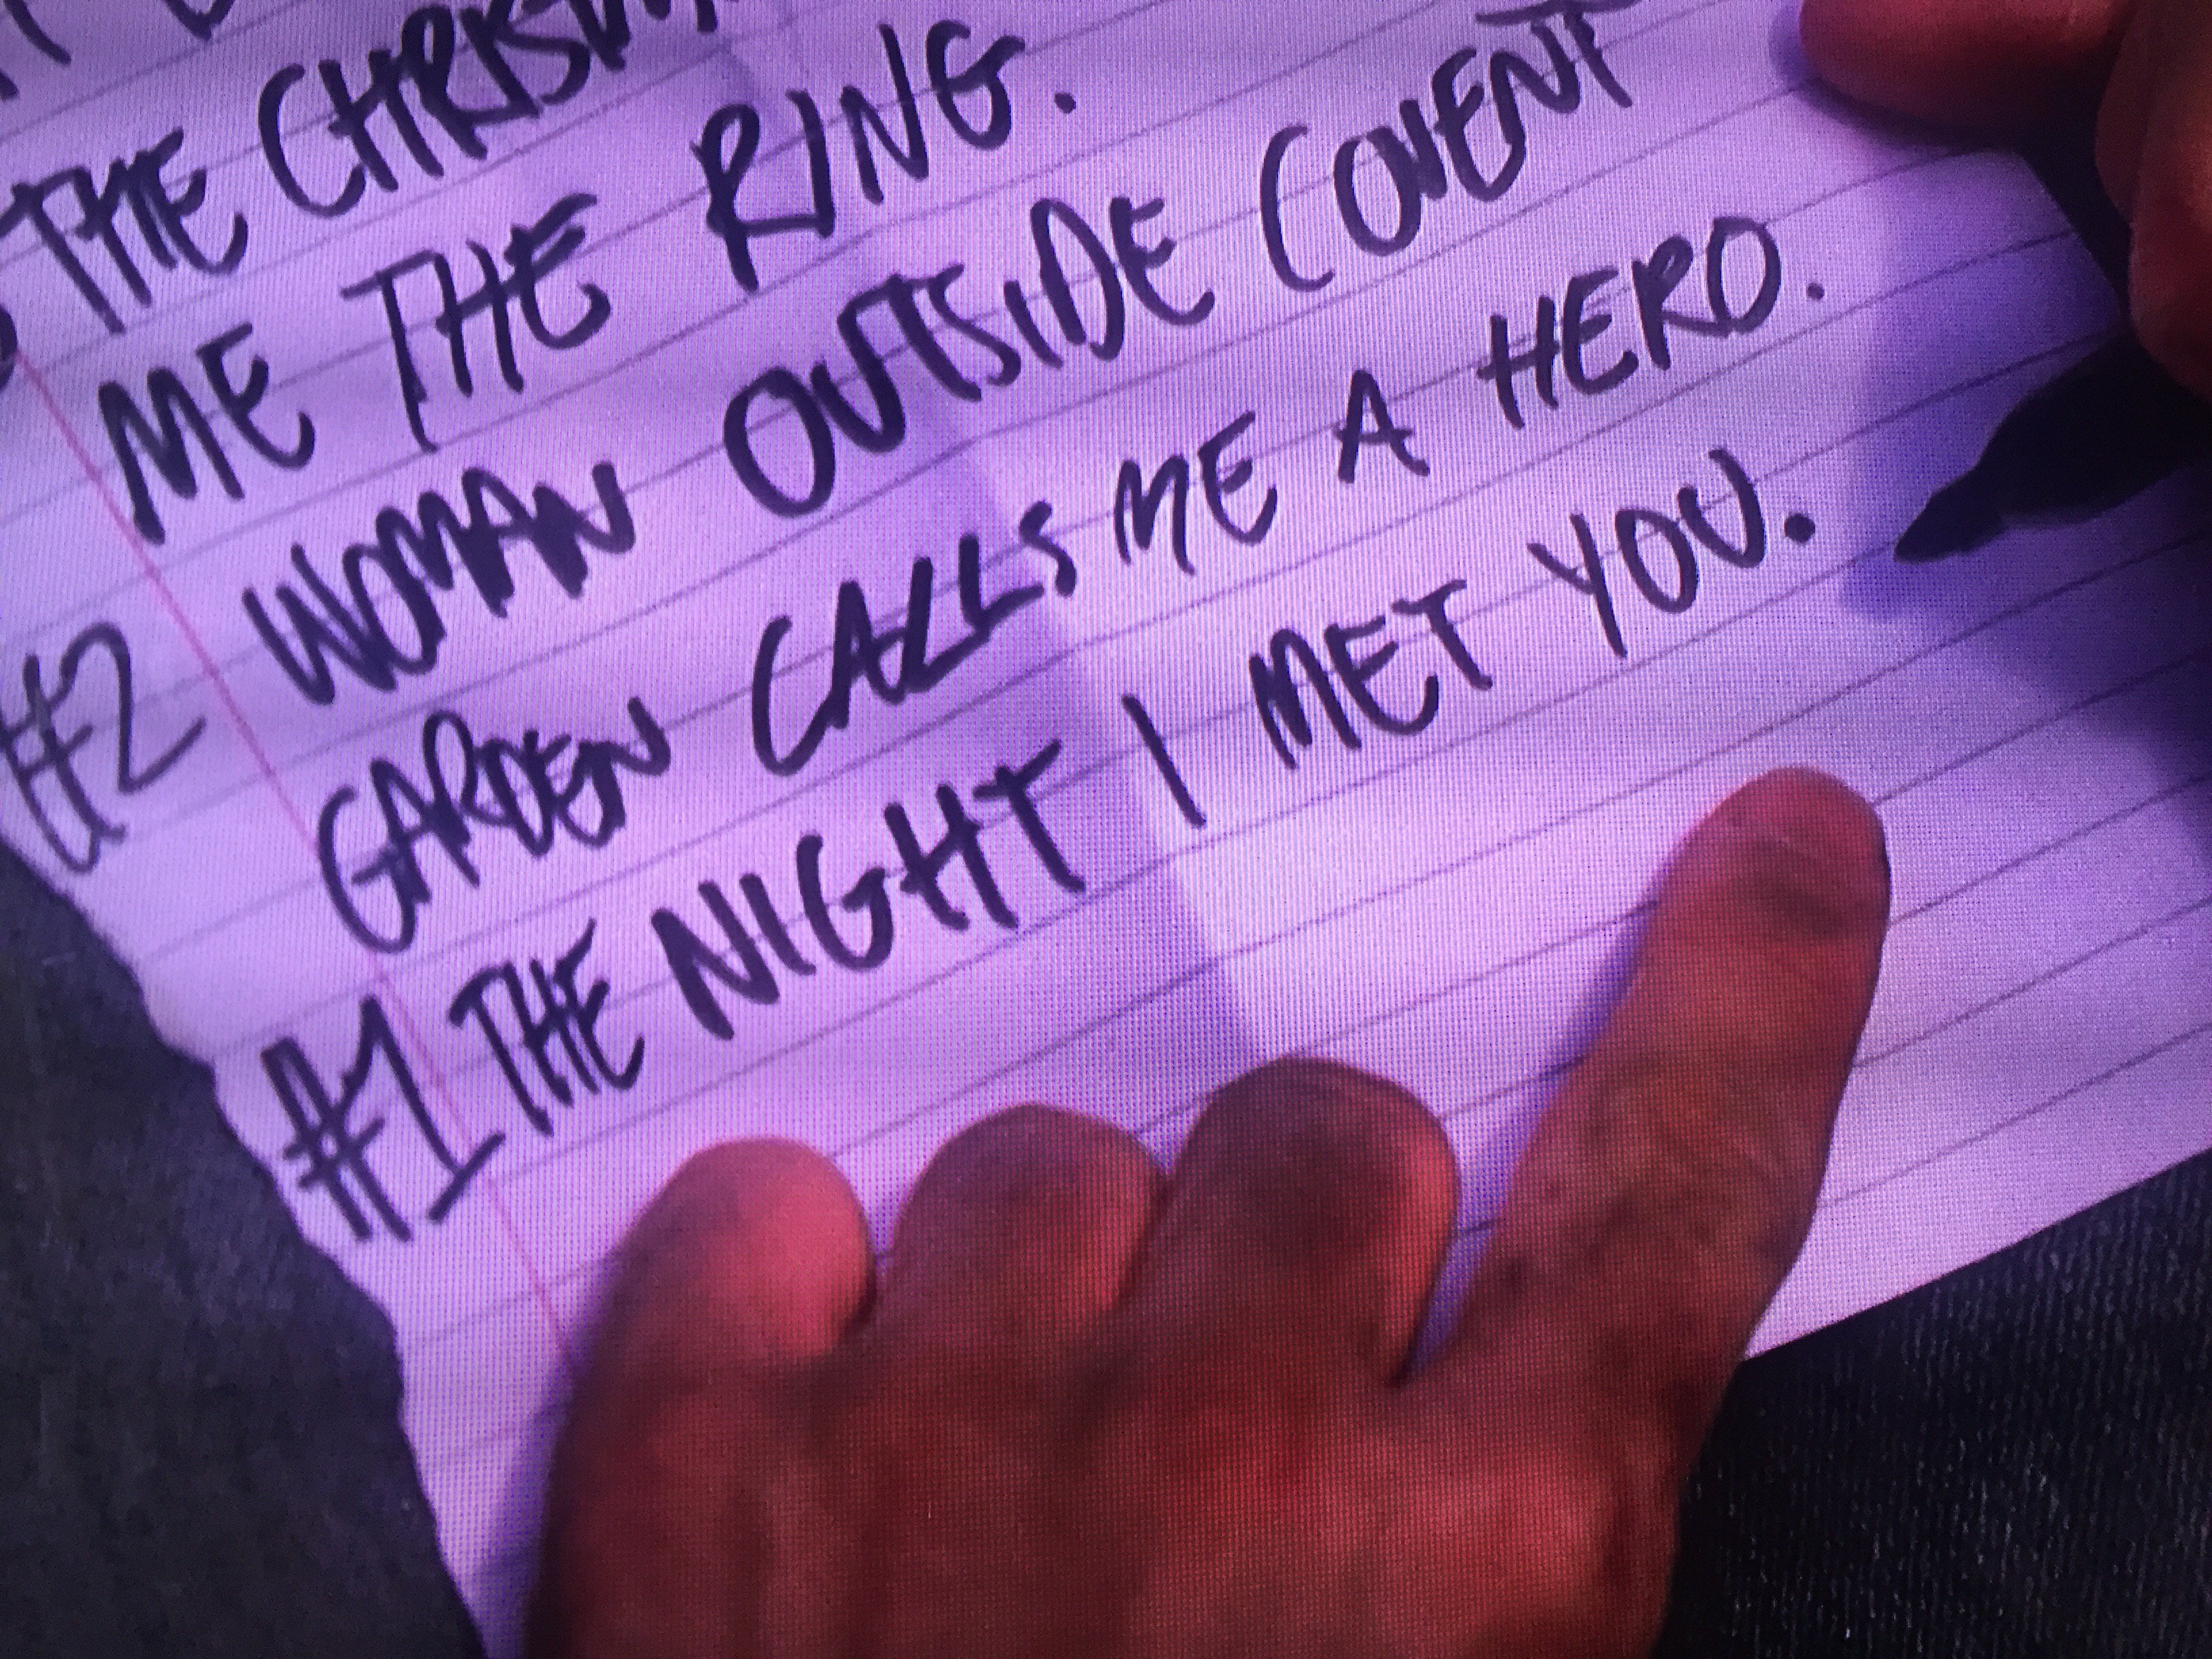 THE CHRISTM
ME THE RING.
#2 WOMAN OUTSIDE COVENT
GARDEN CALLS ME A HERO.
#1 THE NIGHT I MET YOU.